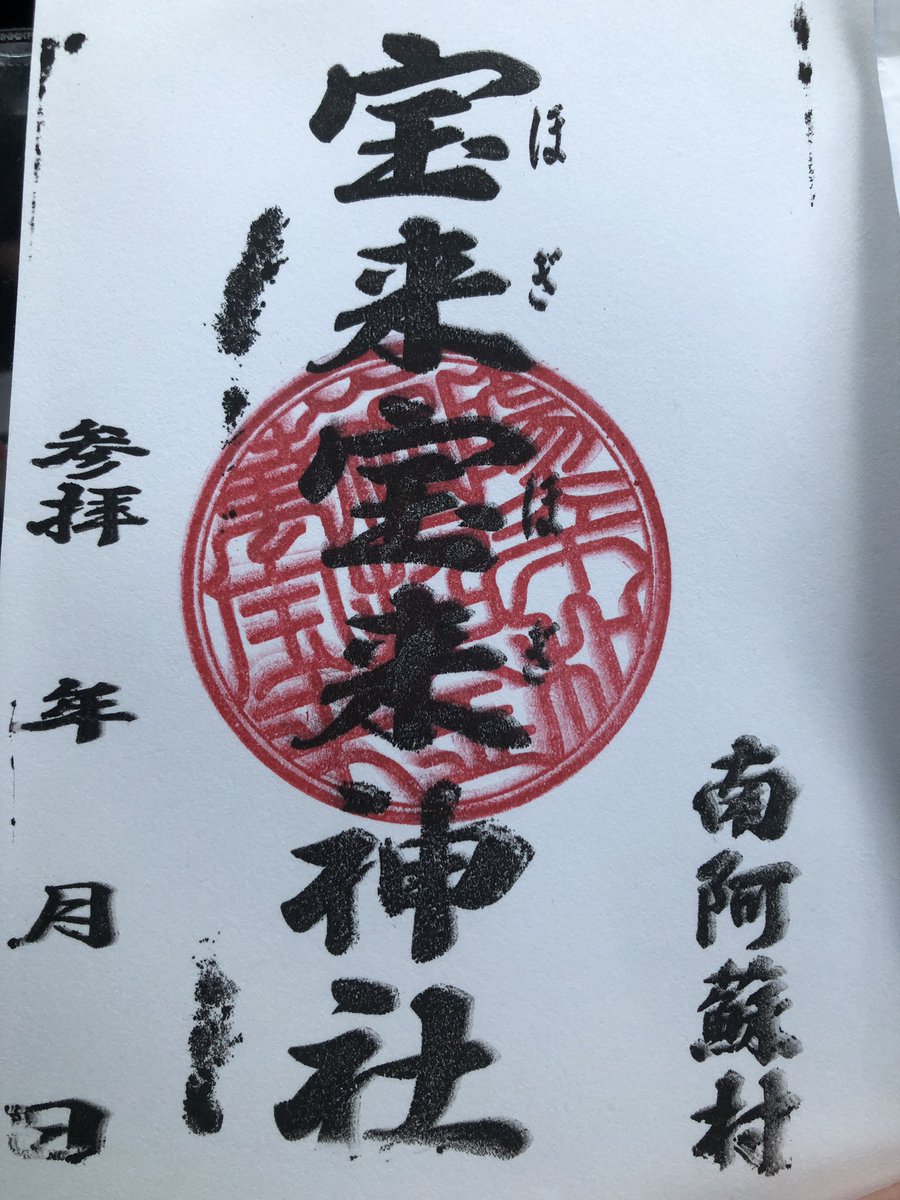 南阿蘇村
ほぎ ほぎ
宝来宝来神社
参拝 年 月 日